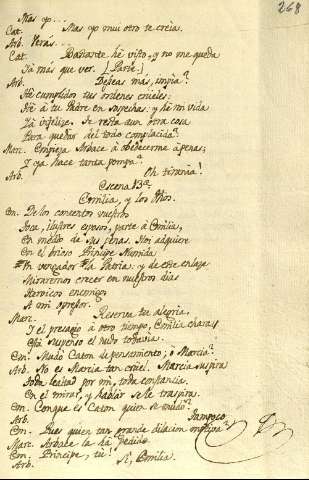 268
Mas yo...
Cat. Mas yo mui otro te creia.
Arb. Verás...
Cat. Bastante hé visto, y no me queda
Yá más que ver. (Parte.)
Arb. Deseas más, impia?
Hé cumplido tus ordenes crueles:
Iré á tu Padre en sospechas: y hé mi vida
Yá infelize. Se resta aun otra cosa
Para quedar del todo complacida?
Marc. Empieza Arbace á obedecerme apenas,
I ya hace tanta pompa?
Arb. Oh tirania!
Escena 13ª
Emilia, y los Dhos.
Em. De los contentos vuestros
Toca, ilustres esposos, parte á Emilia,
En medio de sus penas. Hoi adquiere
En el brioso Principe Numida
Un vengador la Patria: y de este enlace
Miraremos crecer en nuestros dias
Heroicos enemigos
A mi opresor.
Marc. Reserva tu alegria,
I el presagio á otro tiempo, Emilia chara;
Está suspenso el nudo todavia.
Em. Mudó Caton de pensamiento; ó Marcia?
Arb. No es Marcia tan cruel. Marcia suspira
Toda lealtad por mi, toda constancia.
En el mirar, y hablar se le traspira.
Em. Conque es Caton quien se mudó?
Arb. Tampoco.
Em. Pues quien tan grande dilacion
Marc. Arbace la há pedido.
Em. Principe, tú!
Arb. Si, Emilia.